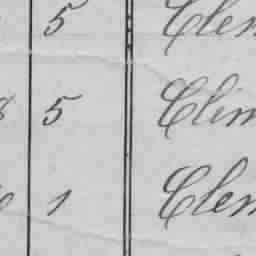 5 Clem
5 Clim
1 Clem